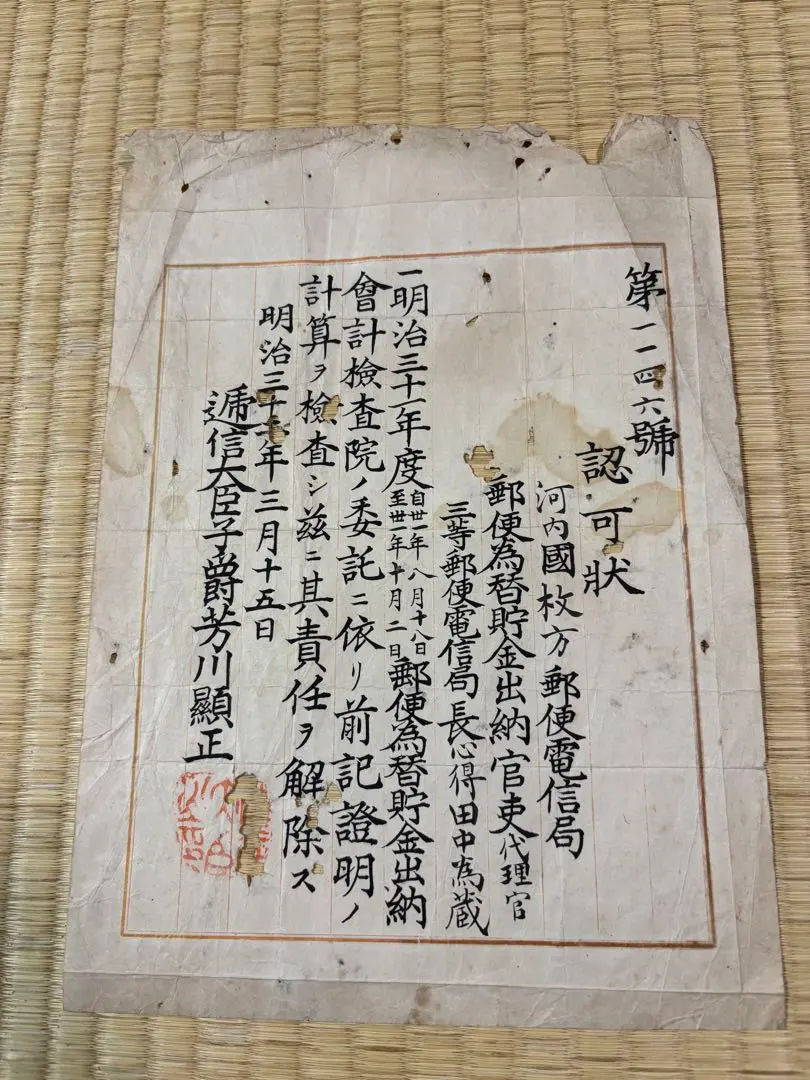 第一一四六號
認可狀
河内國枚方郵便電信局
郵便為替貯金出納官吏代理官
三等郵便電信局長心得田中為蔵
一明治三十一年度自丗一年八月十八日至丗一年十月二日郵便為替貯金出納
會計檢査院ノ委託ニ依リ前記證明ノ
計算ヲ檢査シ茲ニ其責任ヲ解除ス
明治三十年三月十五日
遞信大臣子爵芳川顯正